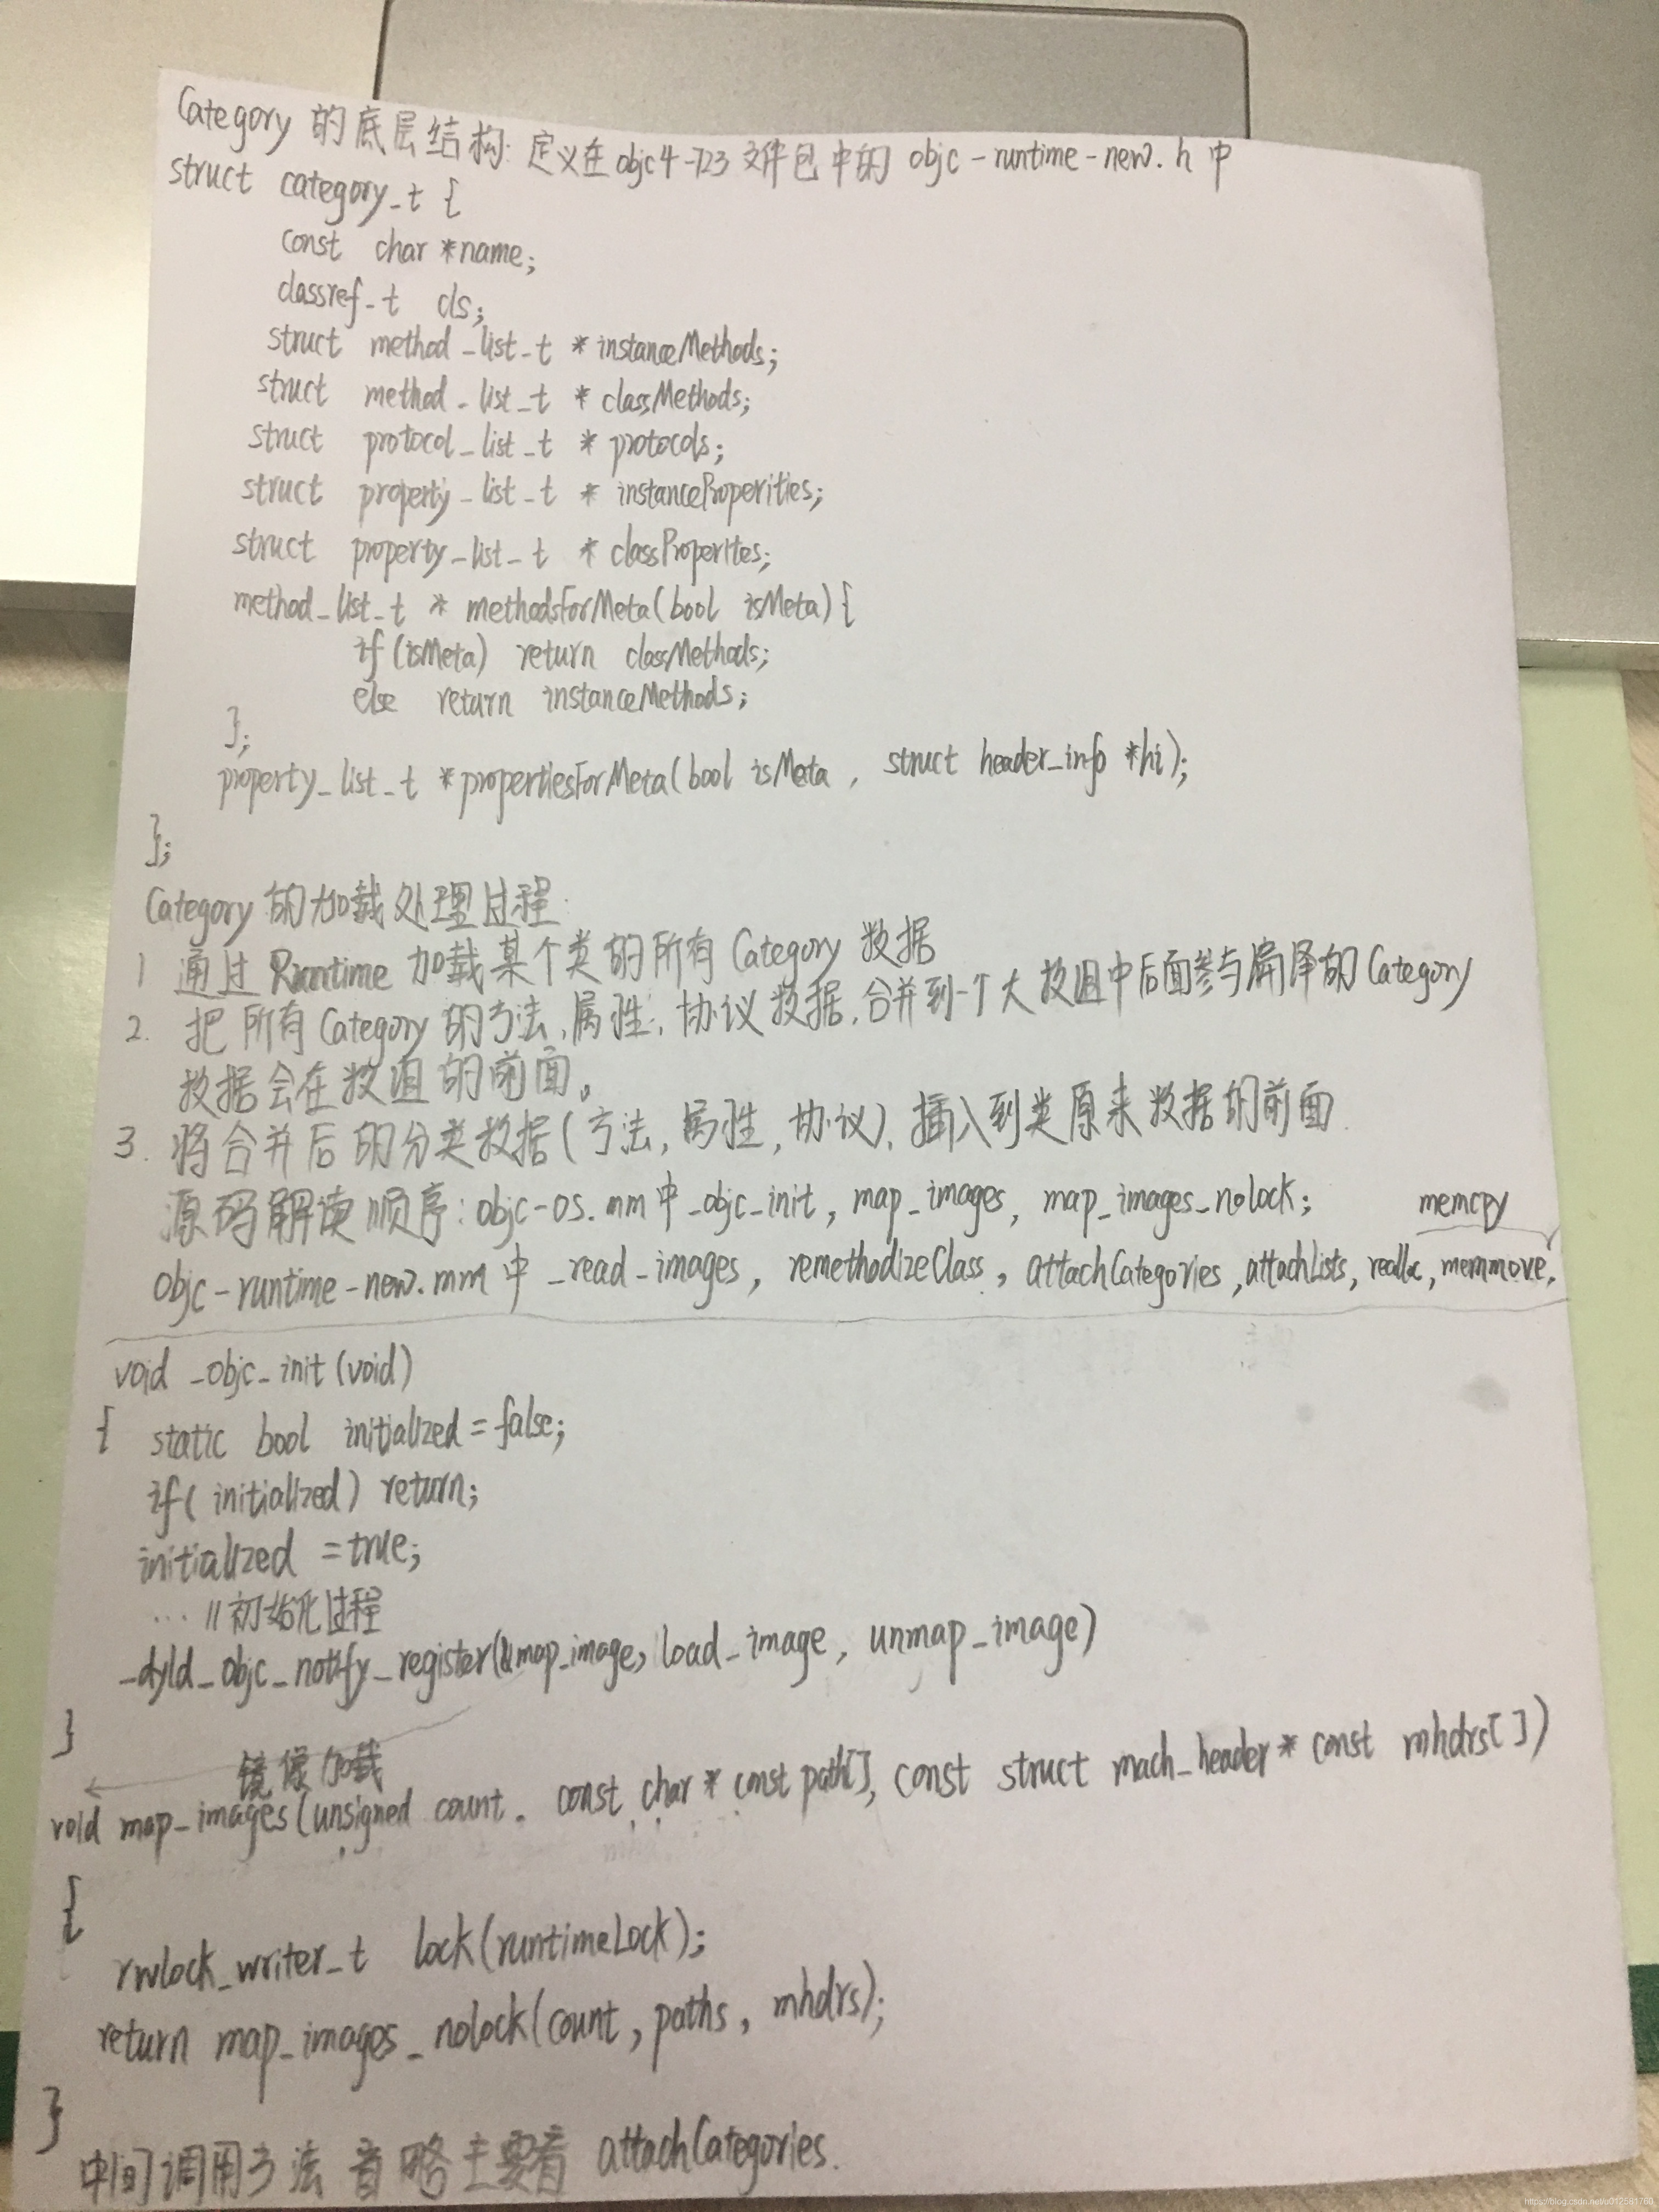 Category 的底层结构: 定义在objc4-723文件包中的 objc-runtime-new.h 中
struct category_t {
const char *name;
classref_t cls;
struct method_list_t *instanceMethods;
struct method_list_t *classMethods;
struct protocol_list_t *protocols;
struct property_list_t *instanceProperities;
struct property_list_t *classProperites;
method_list_t *methodsForMeta(bool isMeta){
if(isMeta) return classMethods;
else return instanceMethods;
};
property_list_t *propertiesForMeta(bool isMeta, struct header_info *hi);
};
Category的加载处理过程:
1 通过 Runtime 加载某个类的所有 Category 数据
2. 把所有Category的方法,属性,协议数据,合并到一个大数组中后面参与编译的Category
数据会在数组的前面。
3. 将合并后的分类数据(方法,属性,协议),插入到类原来数据的前面.
源码解读顺序: objc-os.mm中_objc_init, map_images, map_images_nolock;
memcpy
objc-runtime-new.mm中_read_images, remethodizeClass, attachCategories, attachLists, realloc, memmove,
void _objc_init(void)
{ static bool initialized = false;
if( initialized) return;
initialized = true;
... //初始化过程
_dyld_objc_notify_register(&map_image, load_image, unmap_image)
}
镜像加载
void map_images(unsigned count, const char * const path[], const struct mach_header * const mhdrs[])
{
rwlock_writer_t lock(runtimeLock);
return map_images_nolock(count, paths, mhdrs);
}
中间调用方法 省略主要看 attachCategories.
https://blog.csdn.net/u012581760